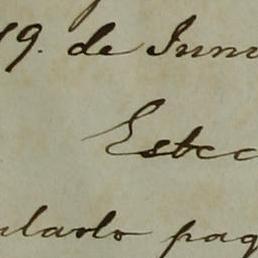 19. de Juni
Estec
ulado pag